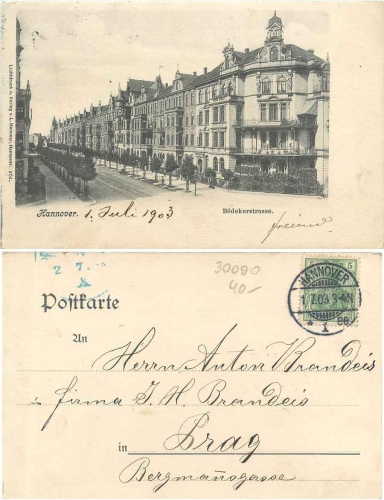 Lichtdruck u. Verlag v. L. Hemmer, Hannover.
Hannover. 1. Juli 1903
Rödekerstrasse.
30090
40.-
HANNOVER
1.7.03 3-4N
* 1 *
Postkarte
An
Herrn Anton Brandeis
firma J. H. Brandeis
in Prag
Bergmannsgasse